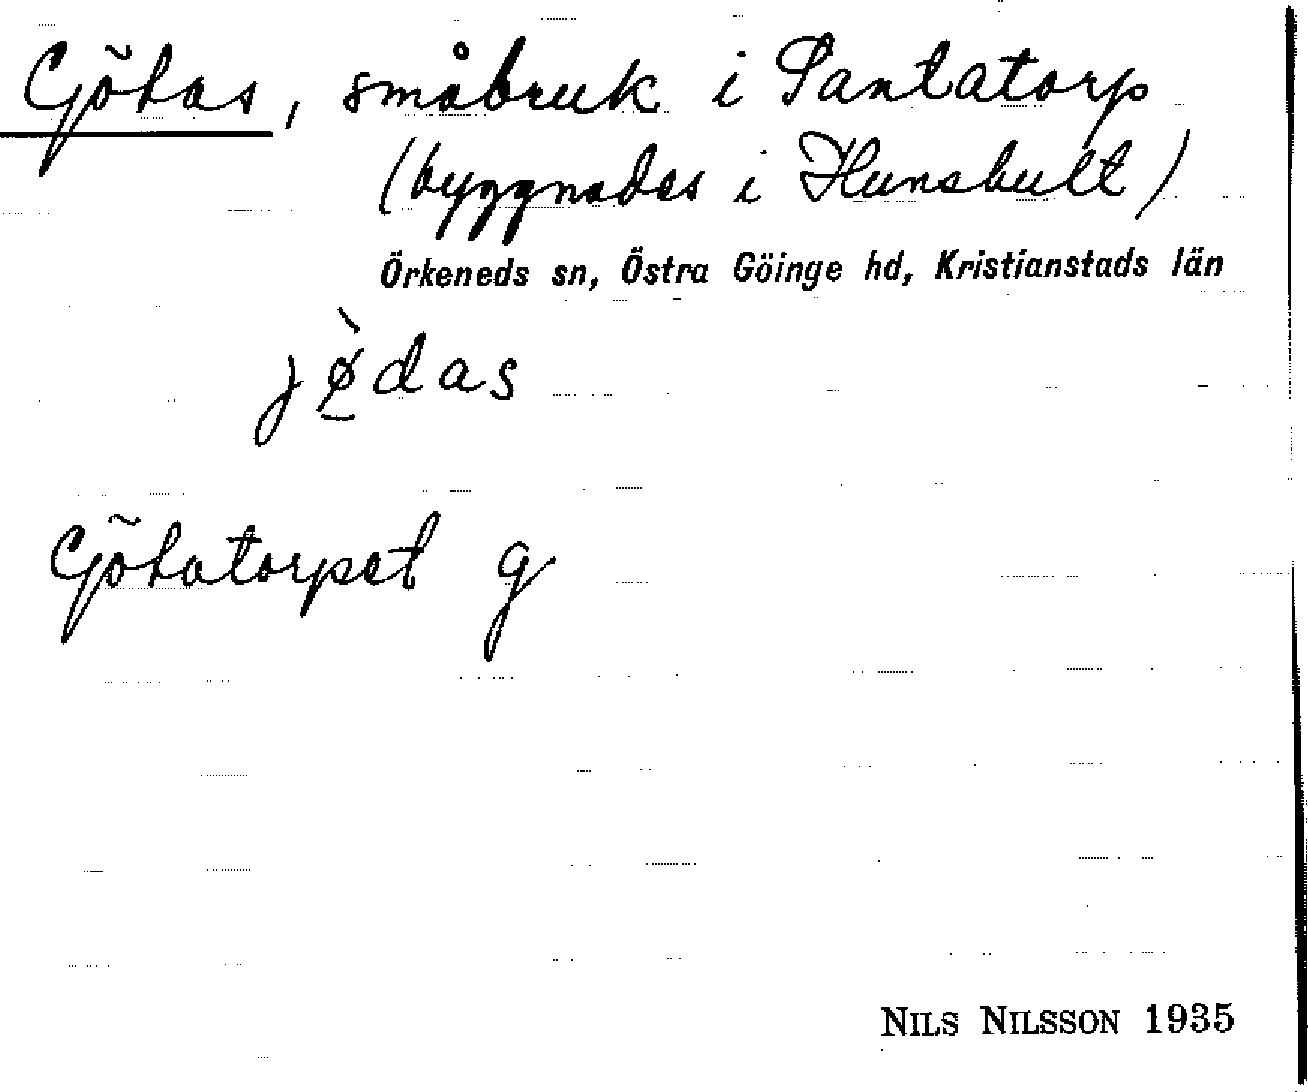 Götas, småbruk i Santatorp
(byggnades i Hunshult)
Örkeneds sn, Östra Göinge hd, Kristianstads län
jø̱̀das
Götatorpet g
NILS NILSSON 1935